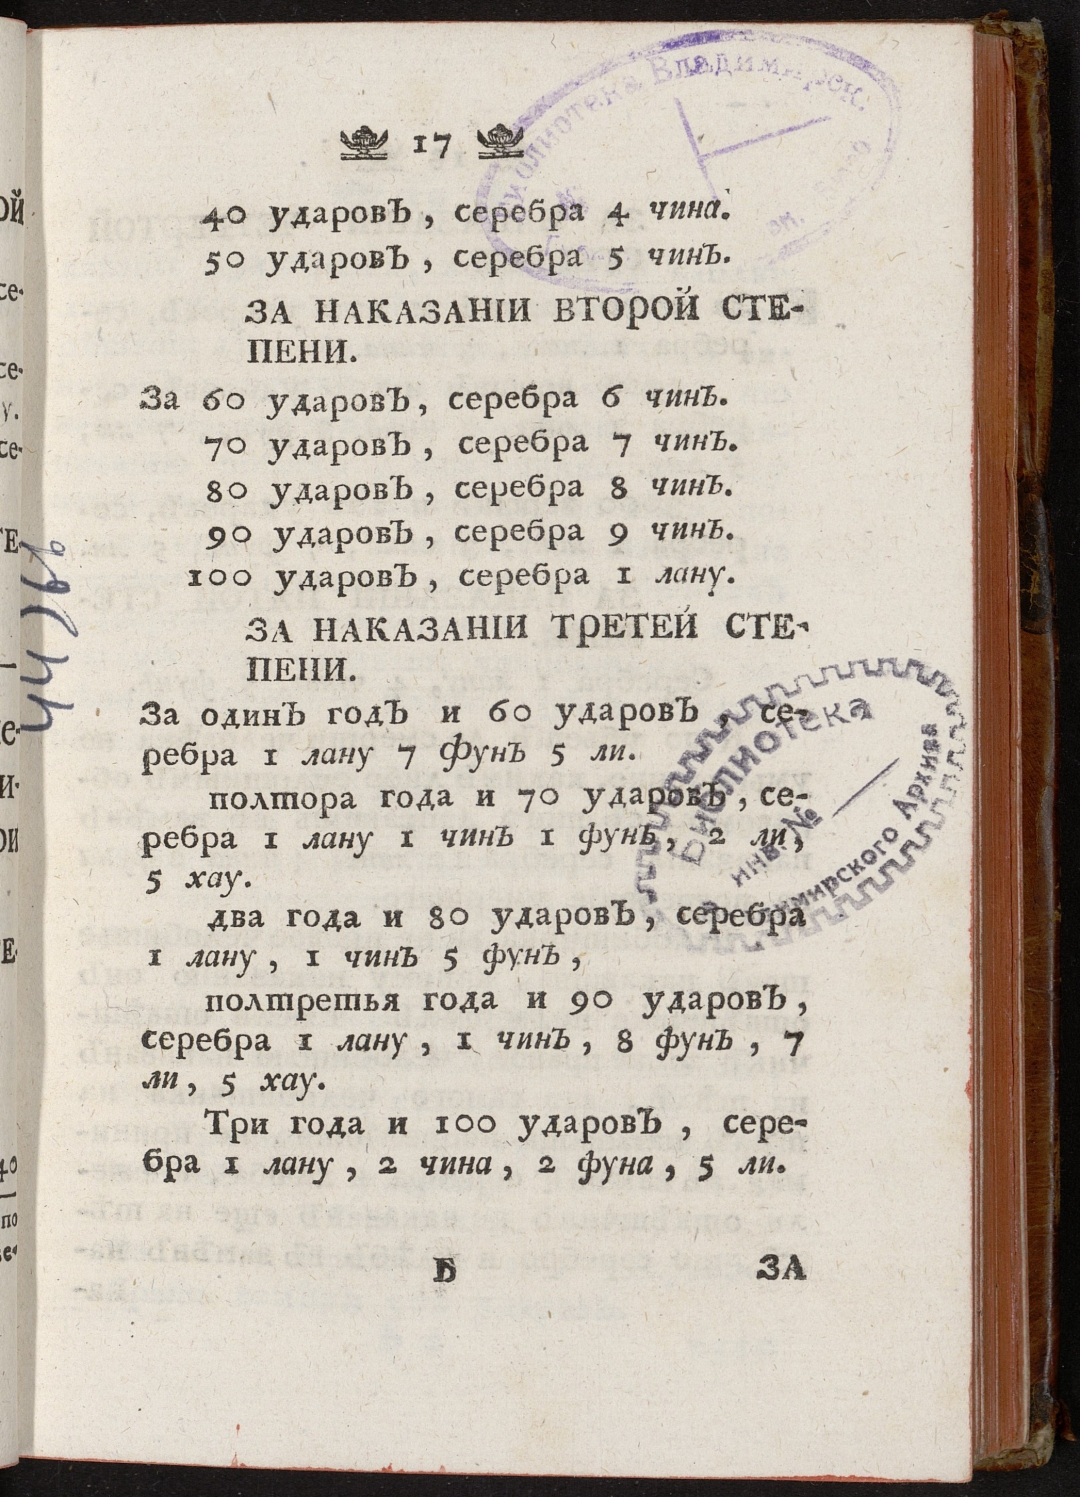 17
40 ударовЪ, серебра 4 чина.
50 ударовЪ, серебра 5 чинЪ.
ЗА НАКАЗАНІИ ВТОРОЙ СТЕ-
ПЕНИ.
За 60 ударовЪ, серебра 6 чинЪ.
70 ударовЪ, серебра 7 чинЪ.
80 ударовЪ, серебра 8 чинЪ.
90 ударовЪ, серебра 9 чинЪ.
100 ударовЪ, серебра 1 лану.
ЗА НАКАЗАНІИ ТРЕТЕЙ СТЕ-
ПЕНИ.
За одинЪ годЪ и 60 ударовЪ, се-
ребра 1 лану 7 фунЪ 5 ли.
полтора года и 70 ударовЪ, се-
ребра 1 лану 1 чинЪ 1 фунЪ, 2 ли,
5 хау.
два года и 80 ударовЪ, серебра
1 лану, 1 чинЪ 5 фунЪ,
полтретья года и 90 ударовЪ,
серебра 1 лану, 1 чинЪ, 8 фунЪ, 7
ли, 5 хау.
Три года и 100 ударовЪ, сере-
бра 1 лану, 2 чина, 2 фуна, 5 ли.
Б ЗА
Библиотека Владимирск.
Библиотека
инв. №
Архива